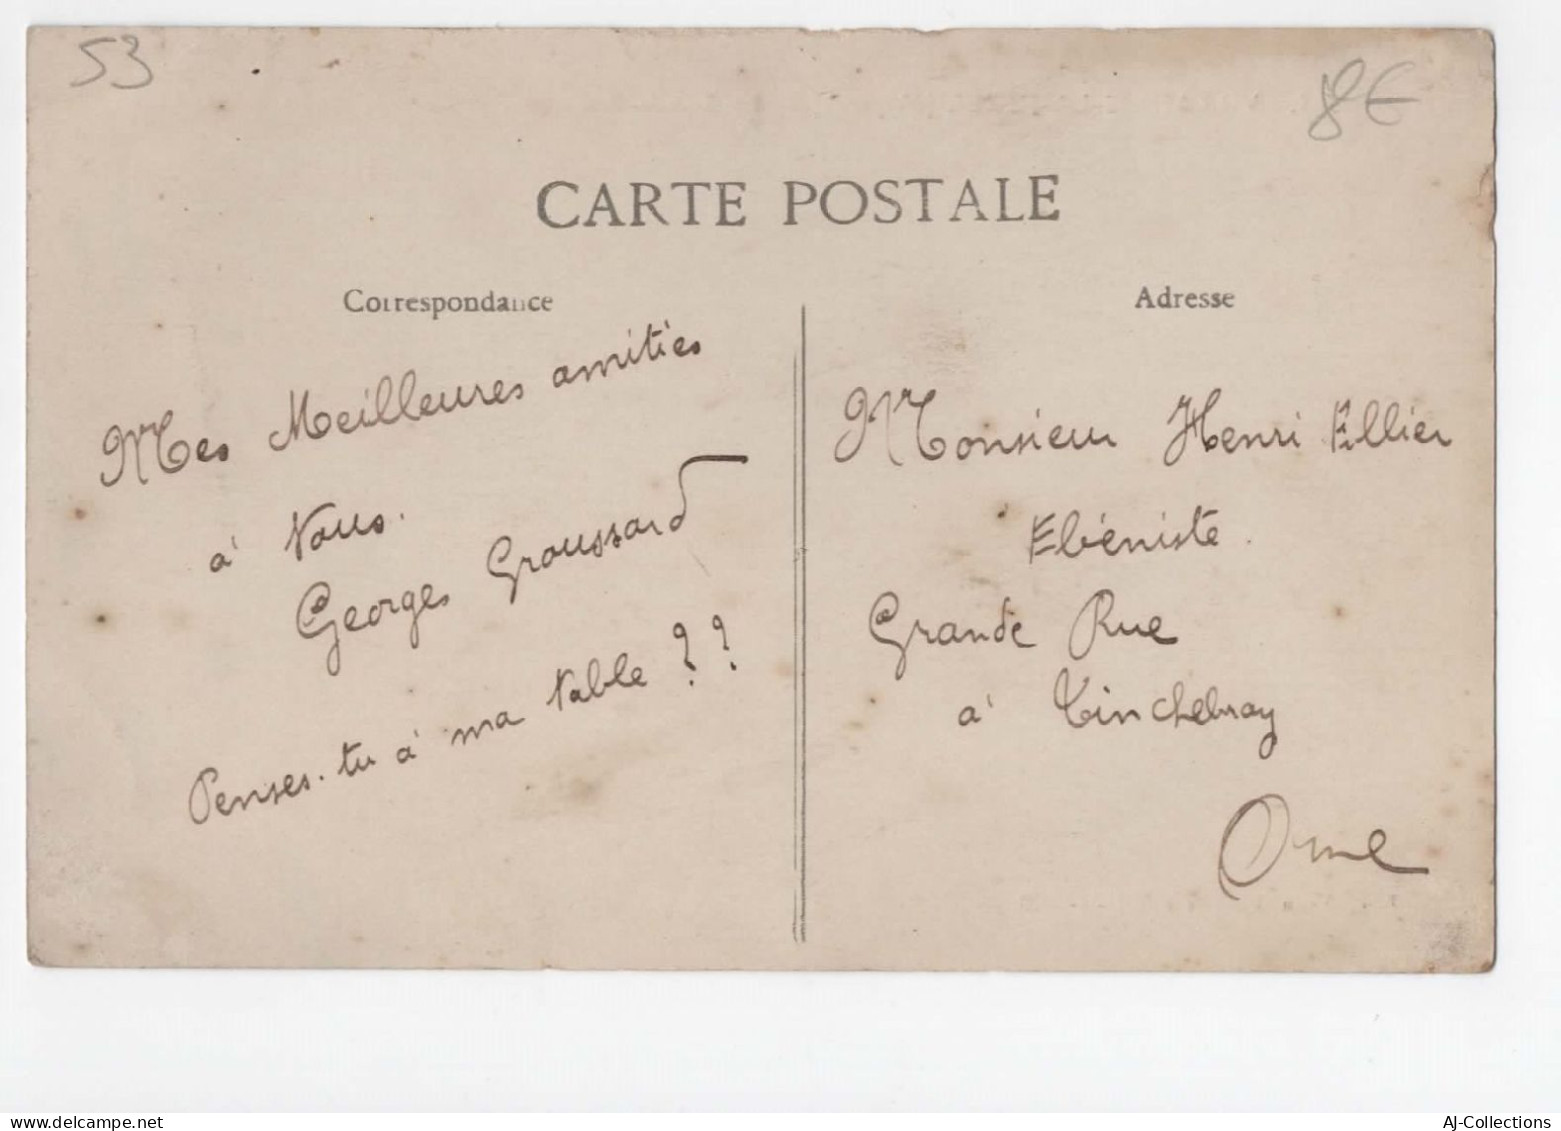 53
8€
CARTE POSTALE
Correspondance
Mes Meilleures amitiés
à Vous.
Georges Groussard
Penses-tu à ma table ??
Adresse
Monsieur Henri Ellier
Ebéniste.
Grande Rue
à Tinchebray
Orne
www.delcampe.net
AJ-Collections